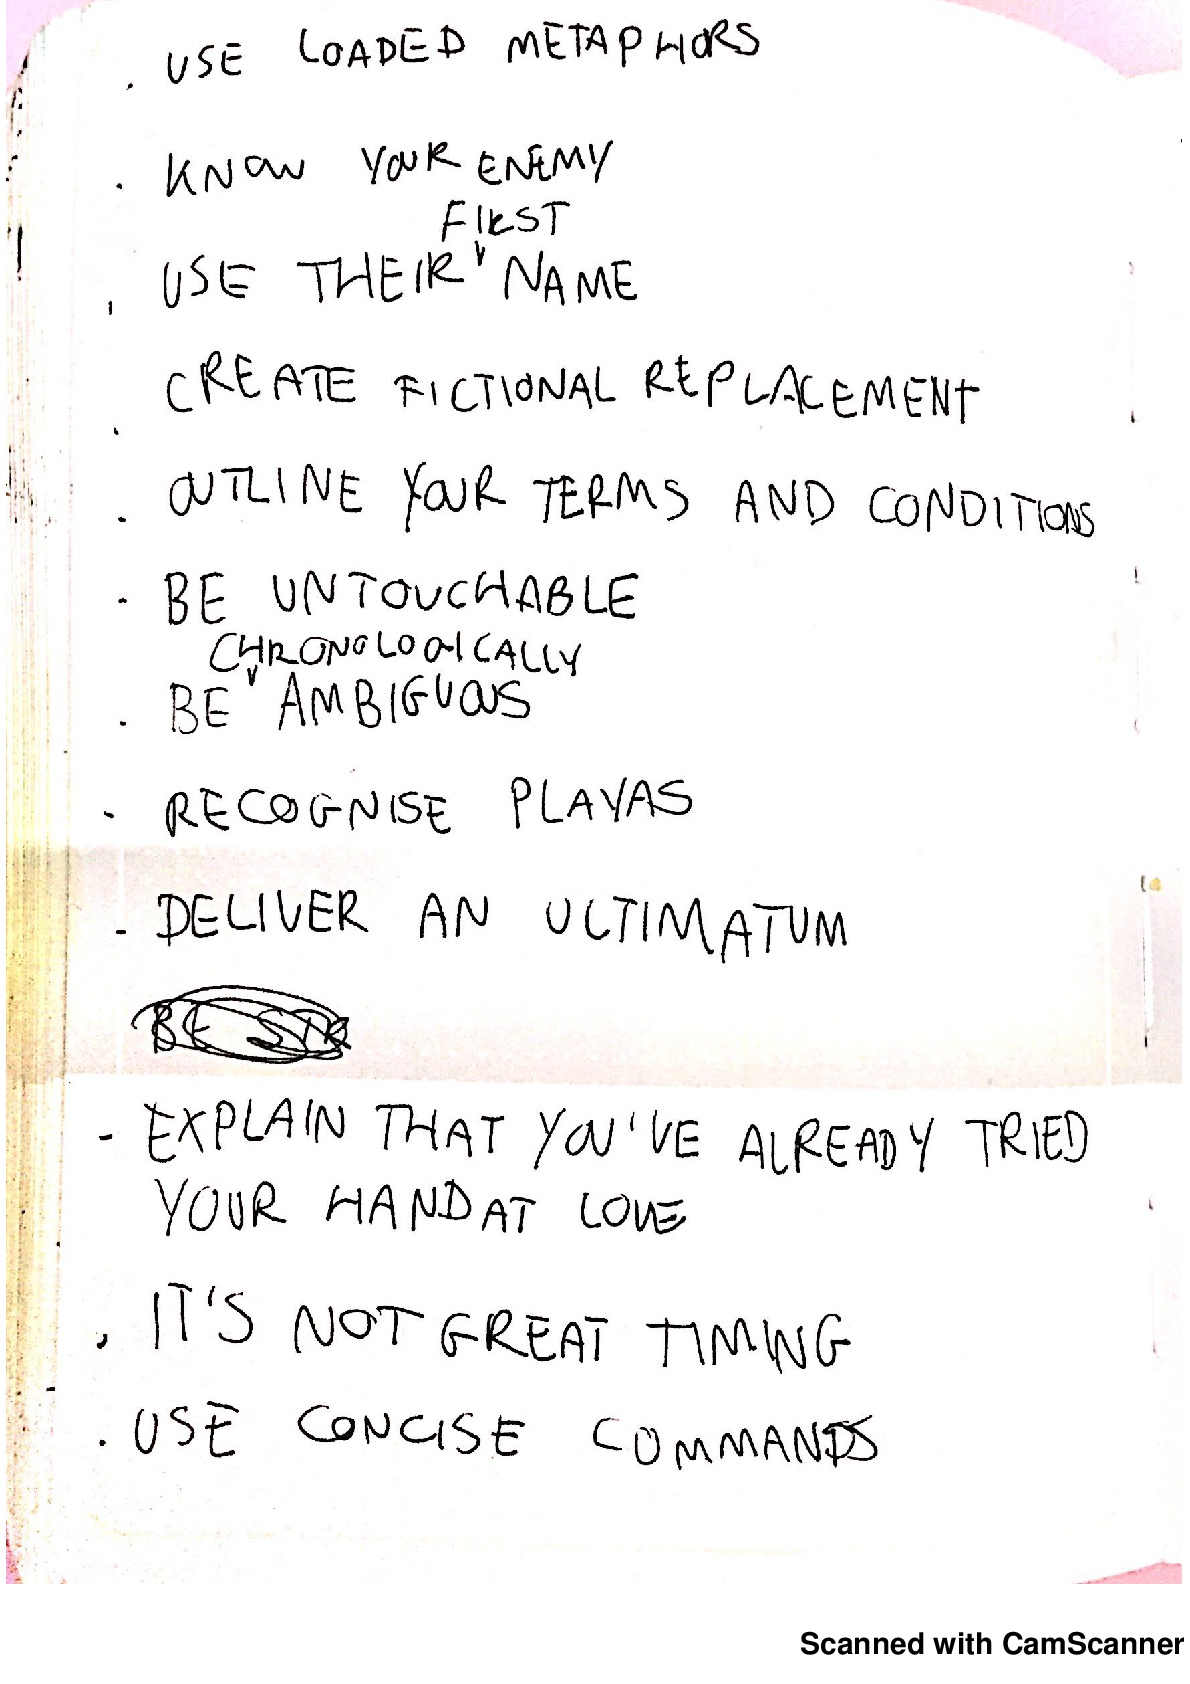 . USE LOADED METAPHORS
. KNOW YOUR ENEMY
FIRST
. USE THEIR NAME
. CREATE FICTIONAL REPLACEMENT
. OUTLINE YOUR TERMS AND CONDITIONS
- BE UNTOUCHABLE
CHRONOLOGICALLY
. BE AMBIGUOUS
- RECOGNISE PLAYAS
- DELIVER AN ULTIMATUM
BE
- EXPLAIN THAT YOU'VE ALREADY TRIED
YOUR HAND AT LOVE
. IT'S NOT GREAT TIMING
. USE CONCISE COMMANDS
Scanned with CamScanner